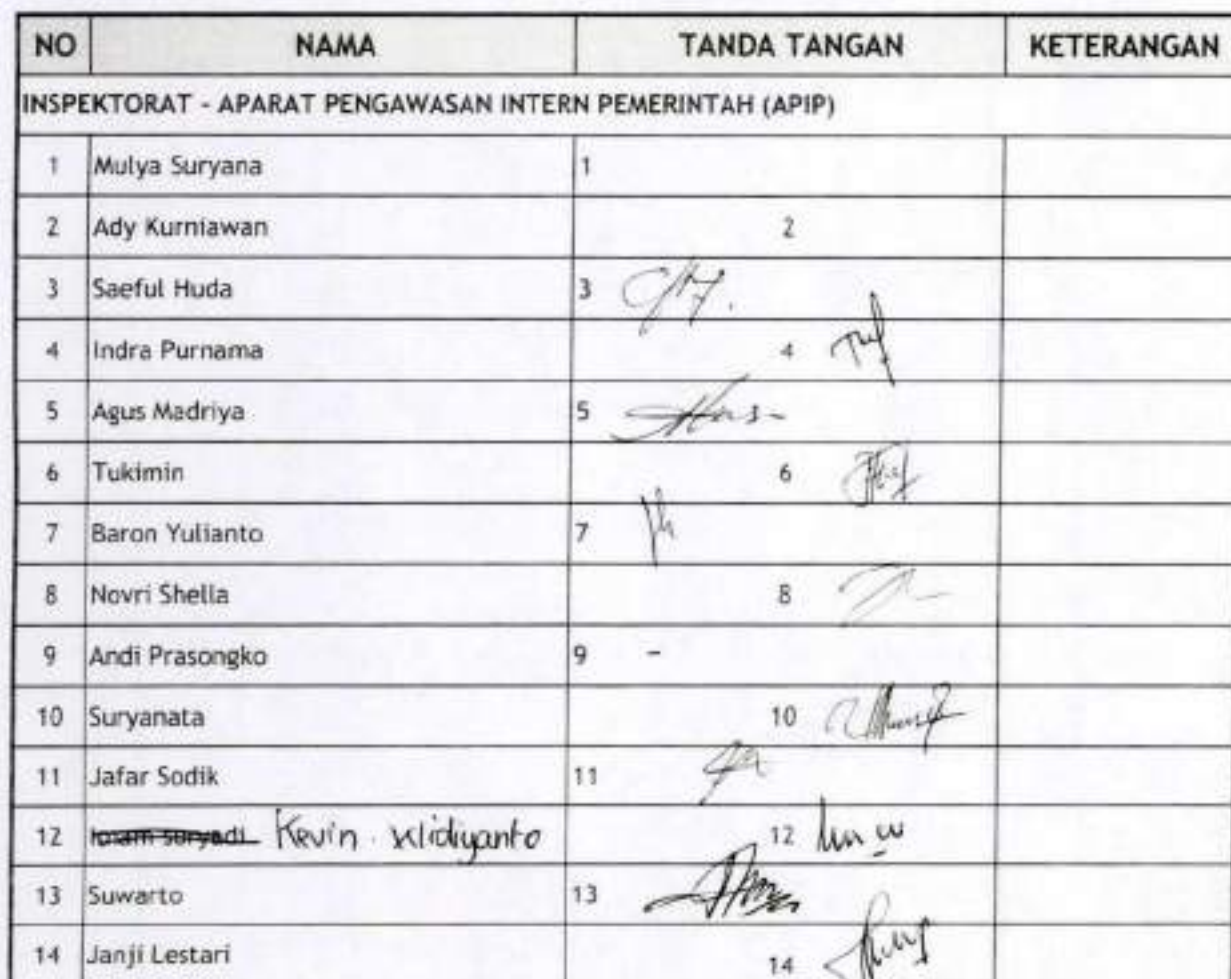 NO NAMA TANDA TANGAN KETERANGAN
INSPEKTORAT - APARAT PENGAWASAN INTERN PEMERINTAH (APIP)
1 Mulya Suryana 1
2 Ady Kurniawan 2
3 Saeful Huda 3
4 Indra Purnama 4
5 Agus Madriya 5
6 Tukimin 6
7 Baron Yulianto 7
8 Novri Shella 8
9 Andi Prasongko 9 -
10 Suryanata 10
11 Jafar Sodik 11
12 suryadi Kevin 12
13 Suwarto 13
14 Janji Lestari 14